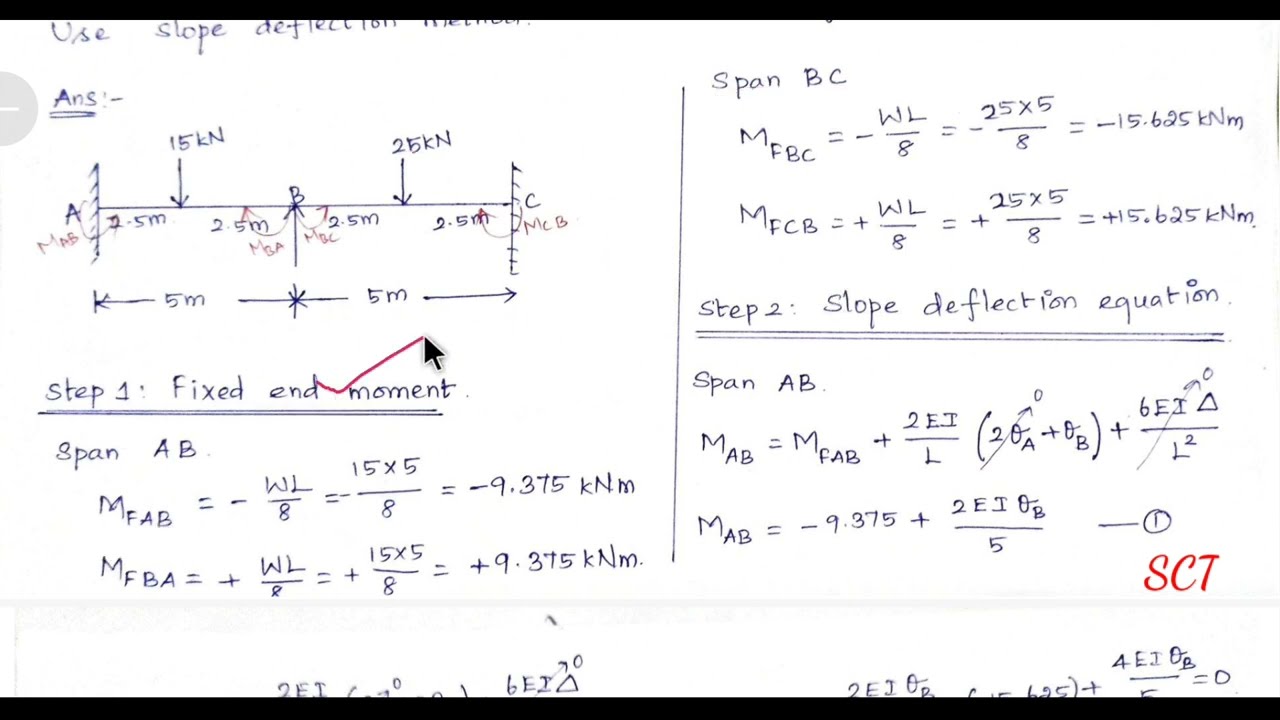 Use slope deflection method.
Ans:-
15kN
25kN
A
B
C
2.5m
2.5m
2.5m
2.5m
MAB
MBA
MBC
MCB
5m
5m
Step 1: Fixed end moment.
Span AB.
MFAB = - WL/8 = - 15×5/8 = -9.375 kNm
MFBA = + WL/8 = + 15×5/8 = +9.375 kNm.
Span BC
MFBC = - WL/8 = - 25×5/8 = -15.625 kNm
MFCB = + WL/8 = + 25×5/8 = +15.625 kNm.
Step 2: Slope deflection equation.
Span AB.
MAB = MFAB + 2EI/L (2θA + θB) + 6EIΔ/L²
0
0
MAB = -9.375 + 2EIθB/5 — ①
SCT
2EI
0
6EIΔ
0
2EIθB
(-15.625) + 4EIθB/5 = 0